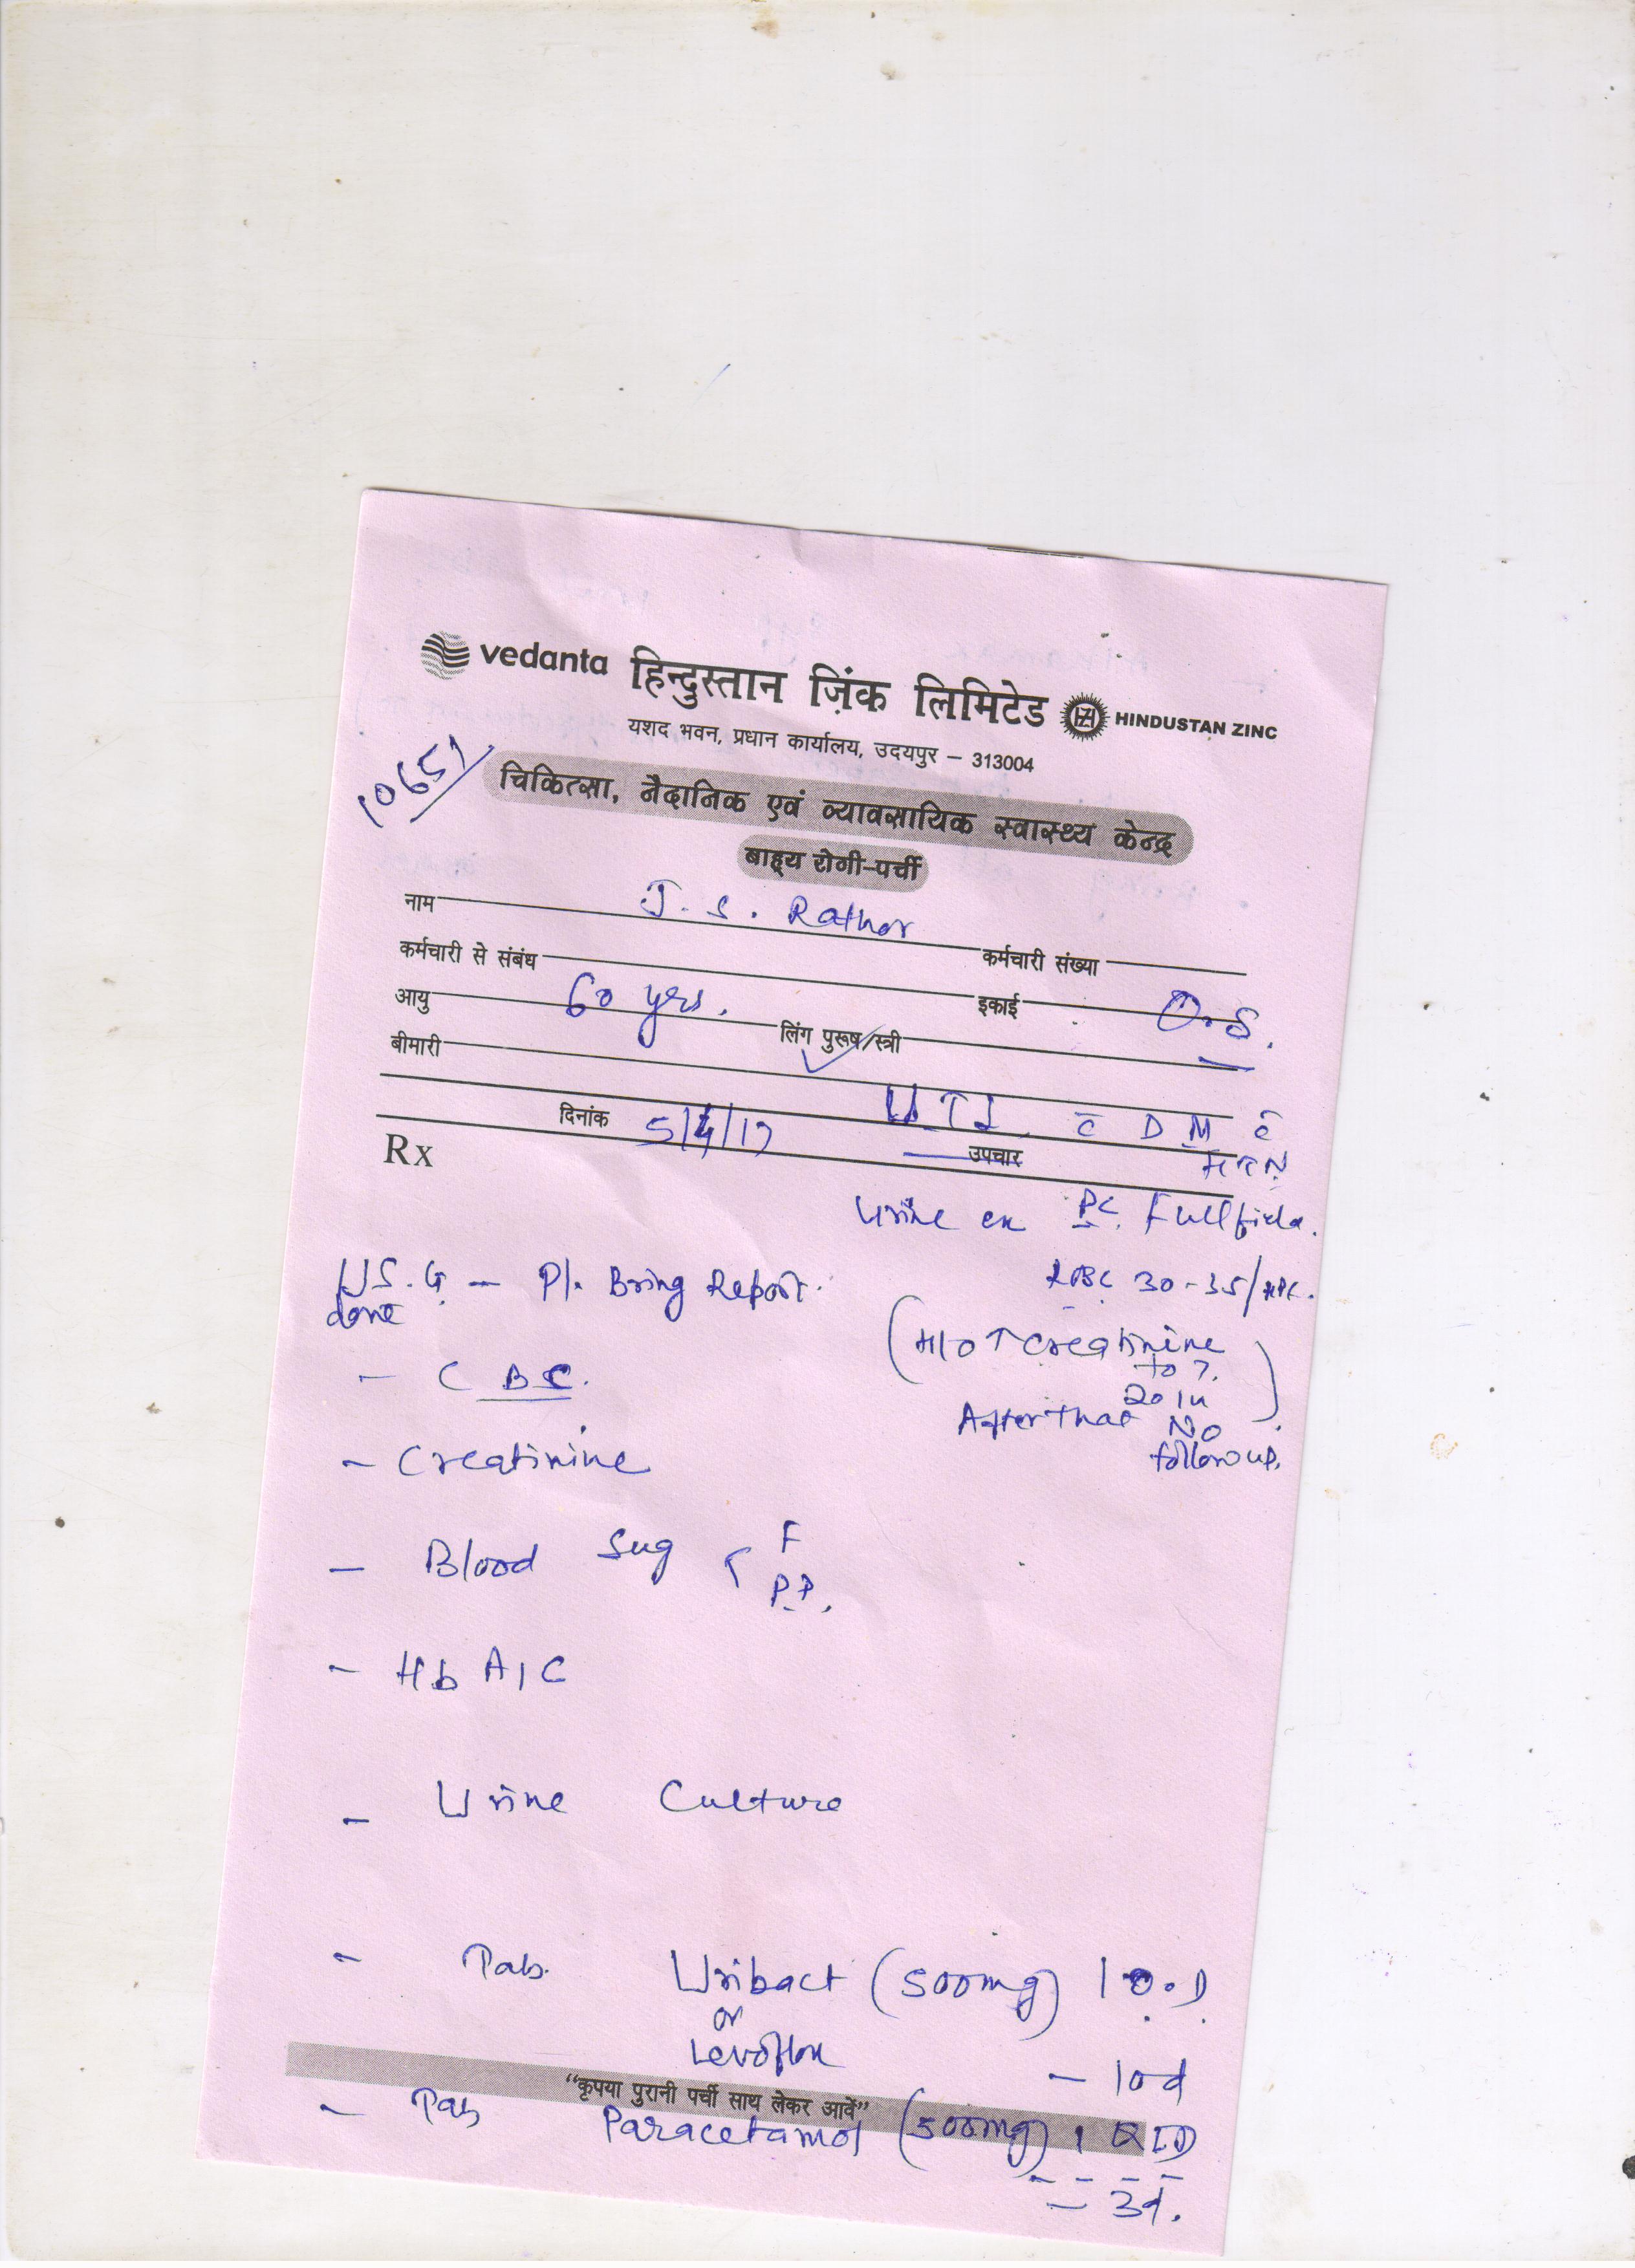 vedanta हिन्दुस्तान ज़िंक लिमिटेड HINDUSTAN ZINC
यशद भवन, प्रधान कार्यालय, उदयपुर – 313004
10651
चिकित्सा, नैदानिक एवं व्यावसायिक स्वास्थ्य केन्द्र
बाह्य रोगी-पर्ची
नाम J. S. Rathor
कर्मचारी से संबंध कर्मचारी संख्या
आयु 60 yrs. इकाई O.S.
बीमारी लिंग पुरूष/स्त्री
UTI c̄ DM c̄
HTN
दिनांक 5/4/17 उपचार
Rx
Urine ex PC Fullfield.
RBC 30-35/HPF.
U.S.G – Pl. Bring Report.
done
(H/O ↑ creatinine
to 7.
20 in
After that No
followup.)
– CBC.
– Creatinine
– Blood Sug F
P.P.
– HbA1C
– Urine Culture
– Tab. Uribact (500mg) 1 O.D
or
Levoflox
– 10d
"कृपया पुरानी पर्ची साथ लेकर आवें"
– Tab Paracetamol (500mg) 1 QID
– 3d.